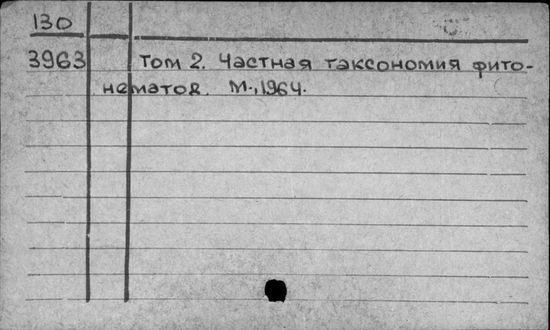 130
3963 Том 2. Частная таксономия фито-
нематод. М., 1964.